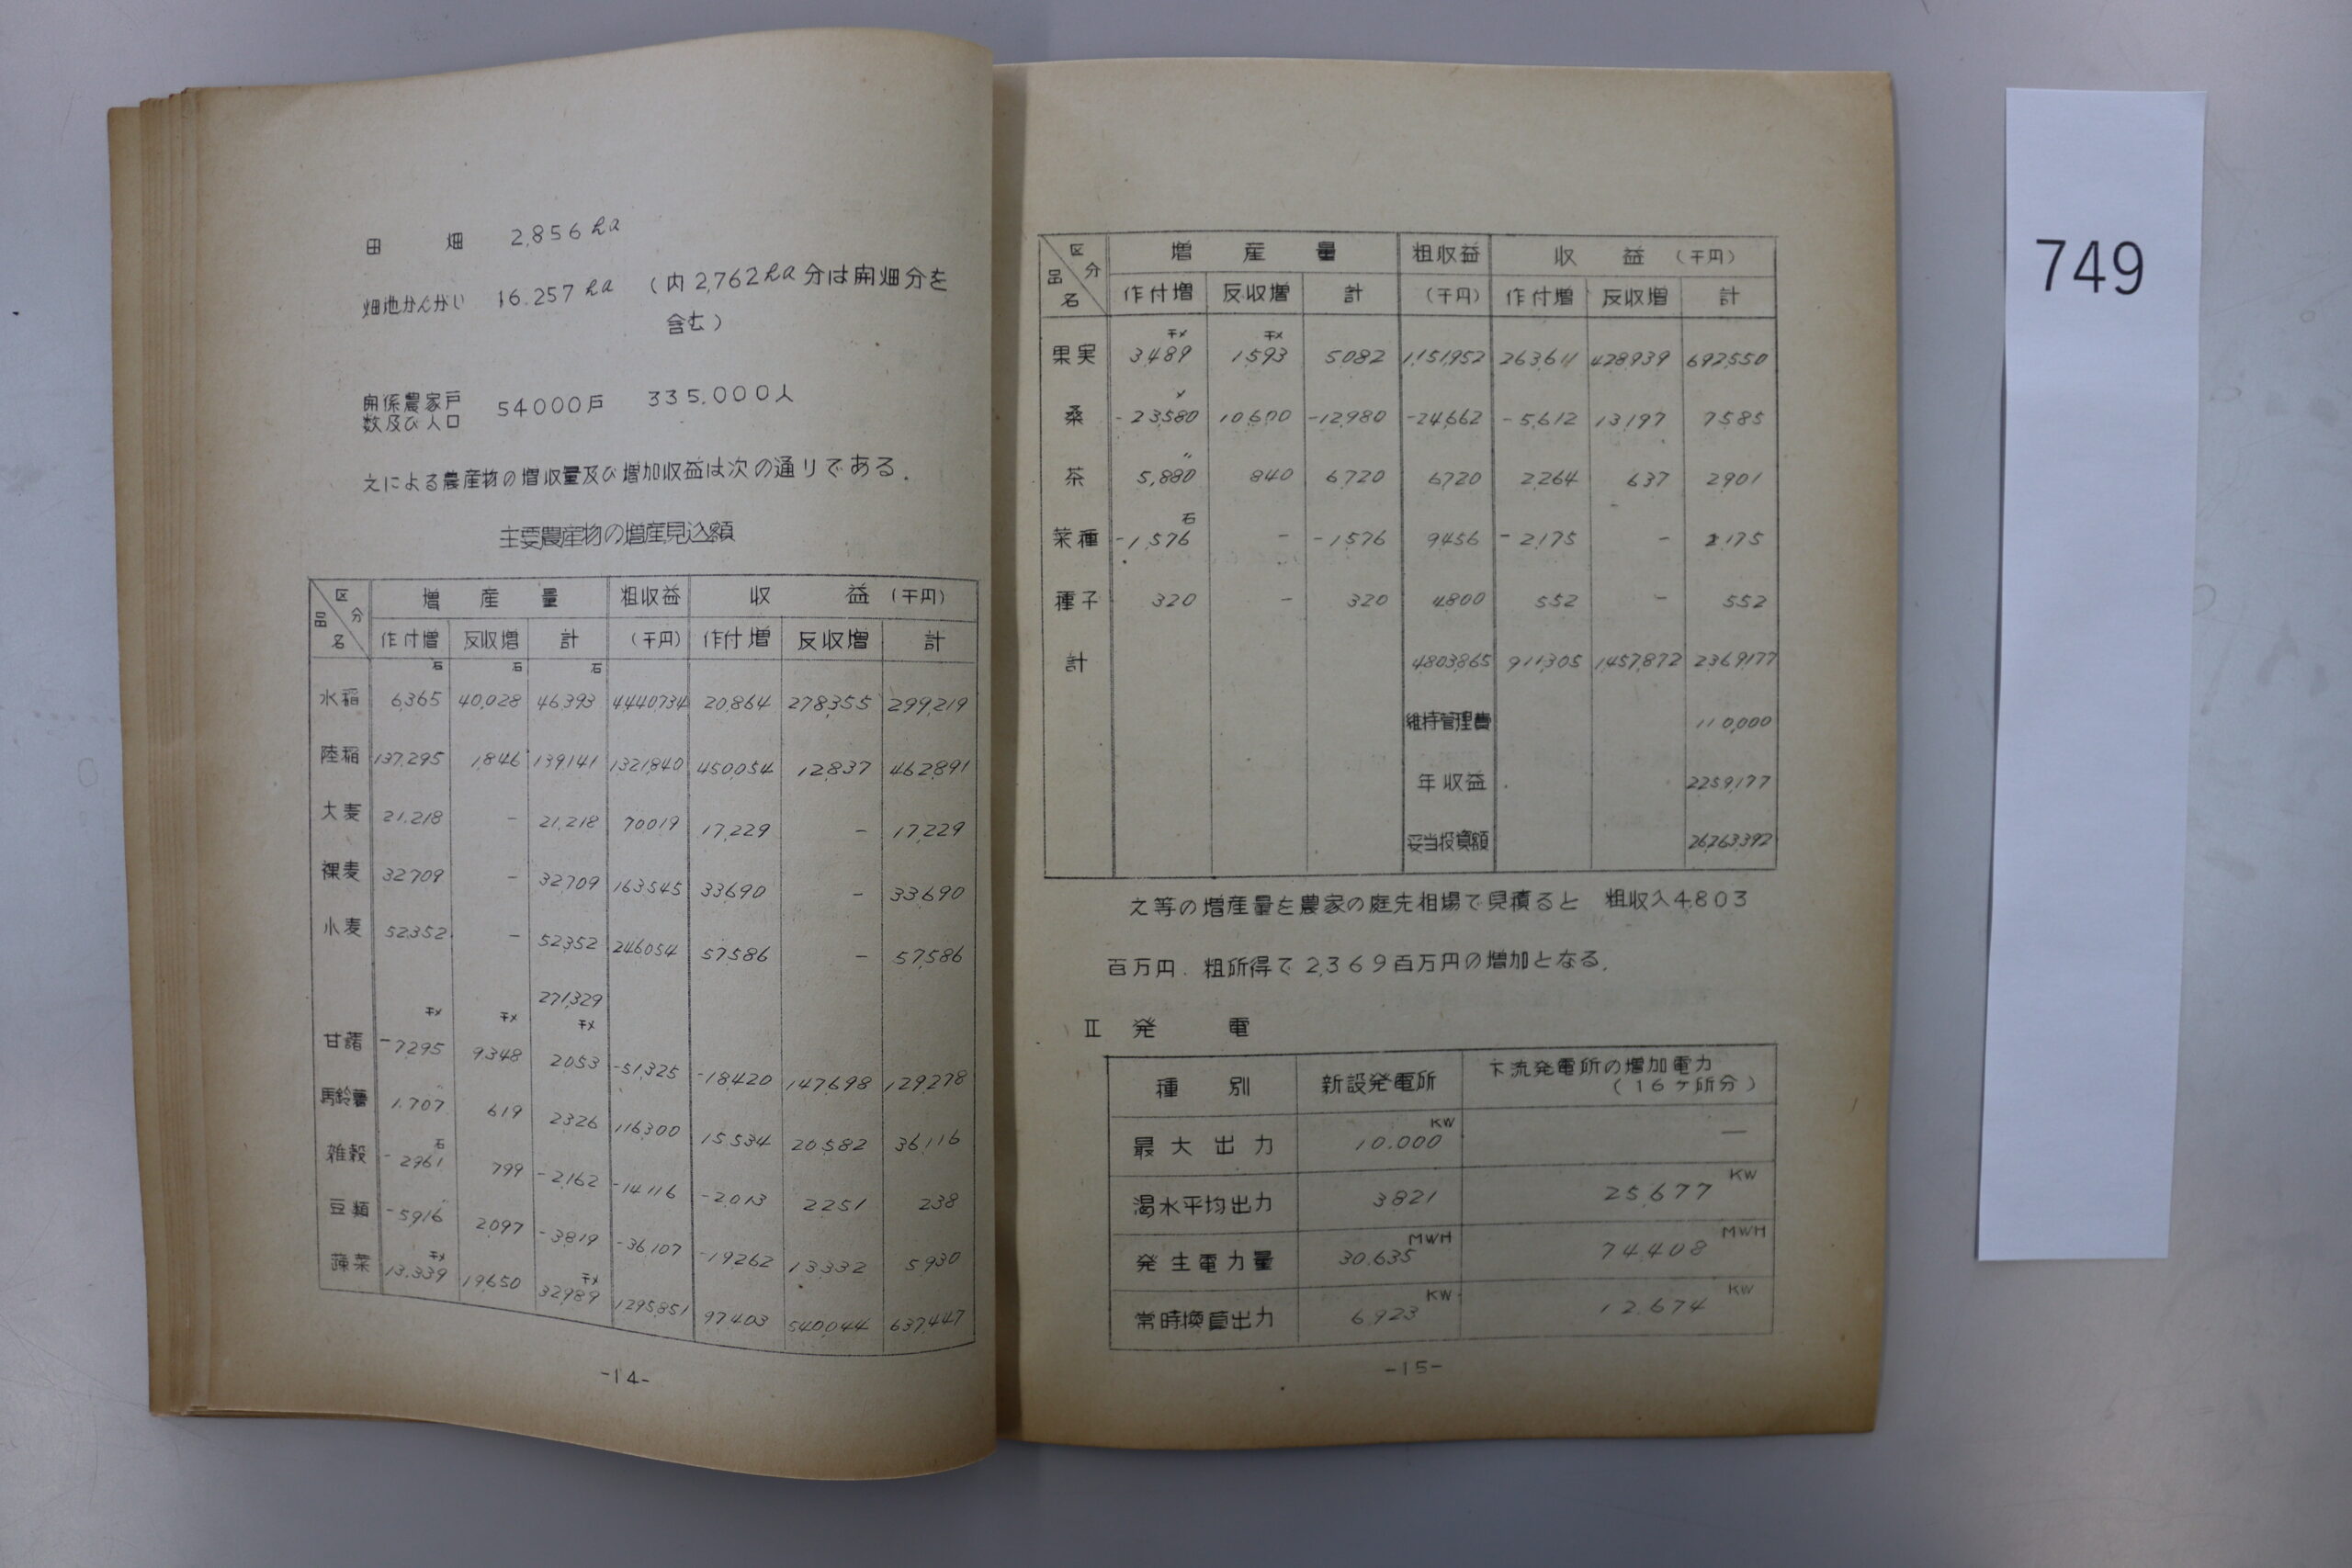 田 畑 2,856ha
畑地かんがい 16.257ha (内2,762ha分は開畑分を
含む)
関係農家戸
数及び人口 54000戸 335,000人
之による農産物の増収量及び増加収益は次の通りである.
主要農産物の増産見込額
区分 品名 増産量 粗収益 収益(千円)
作付増 反収増 計 (千円) 作付増 反収増 計
石 石 石
水稲 6,365 40,028 46,393 4440734 20,864 278,355 299,219
陸稲 137,295 1,846 139,141 1321,840 450,054 12,837 462,891
大麦 21,218 - 21,218 70019 17,229 - 17,229
裸麦 32,709 - 32,709 163,545 33,690 - 33,690
小麦 52,352 - 52,352 246,054 57,586 - 57,586
271,329
千メ 千メ 千メ
甘藷 -7,295 9,348 2,053 -51,325 -18,420 147,698 129,278
馬鈴薯 1,707 619 2326 116,300 15,534 20,582 36,116
石
雑穀 -2961 799 -2,162 -14,116 -2,013 2251 238
豆類 -5,916 2,097 -3,819 -36,107 -19,262 13,332 5,930
千メ 千メ
蔬菜 13,339 19,650 32,989 1,295,851 97,403 540,044 637,447
-14-
区分 品名 増産量 粗収益 収益(千円)
作付増 反収増 計 (千円) 作付増 反収増 計
千メ 千メ
果実 3,489 1,593 5,082 1,151,952 263,611 428,939 692,550
メ
桑 -23,580 10,600 -12,980 -24,662 -5,612 13,197 7,585
〃
茶 5,880 840 6,720 6,720 2,264 637 2,901
石
菜種 -1,576 - -1,576 9456 -2,175 - 2,175
種子 320 - 320 4,800 552 - 552
計 4,803,865 911,305 1,457,872 2,369,177
維持管理費 110,000
年収益 2,259,177
妥当投資額 26,263,392
之等の増産量を農家の庭先相場で見積ると 粗収入4,803
百万円.粗所得で2,369百万円の増加となる.
Ⅱ 発 電
種別 新設発電所 下流発電所の増加電力
(16ヶ所分)
最大出力 10,000KW —
渇水平均出力 3,821 25,677KW
発生電力量 30,635MWH 74,408MWH
常時換算出力 6,923KW 12,674KW
-15-
749